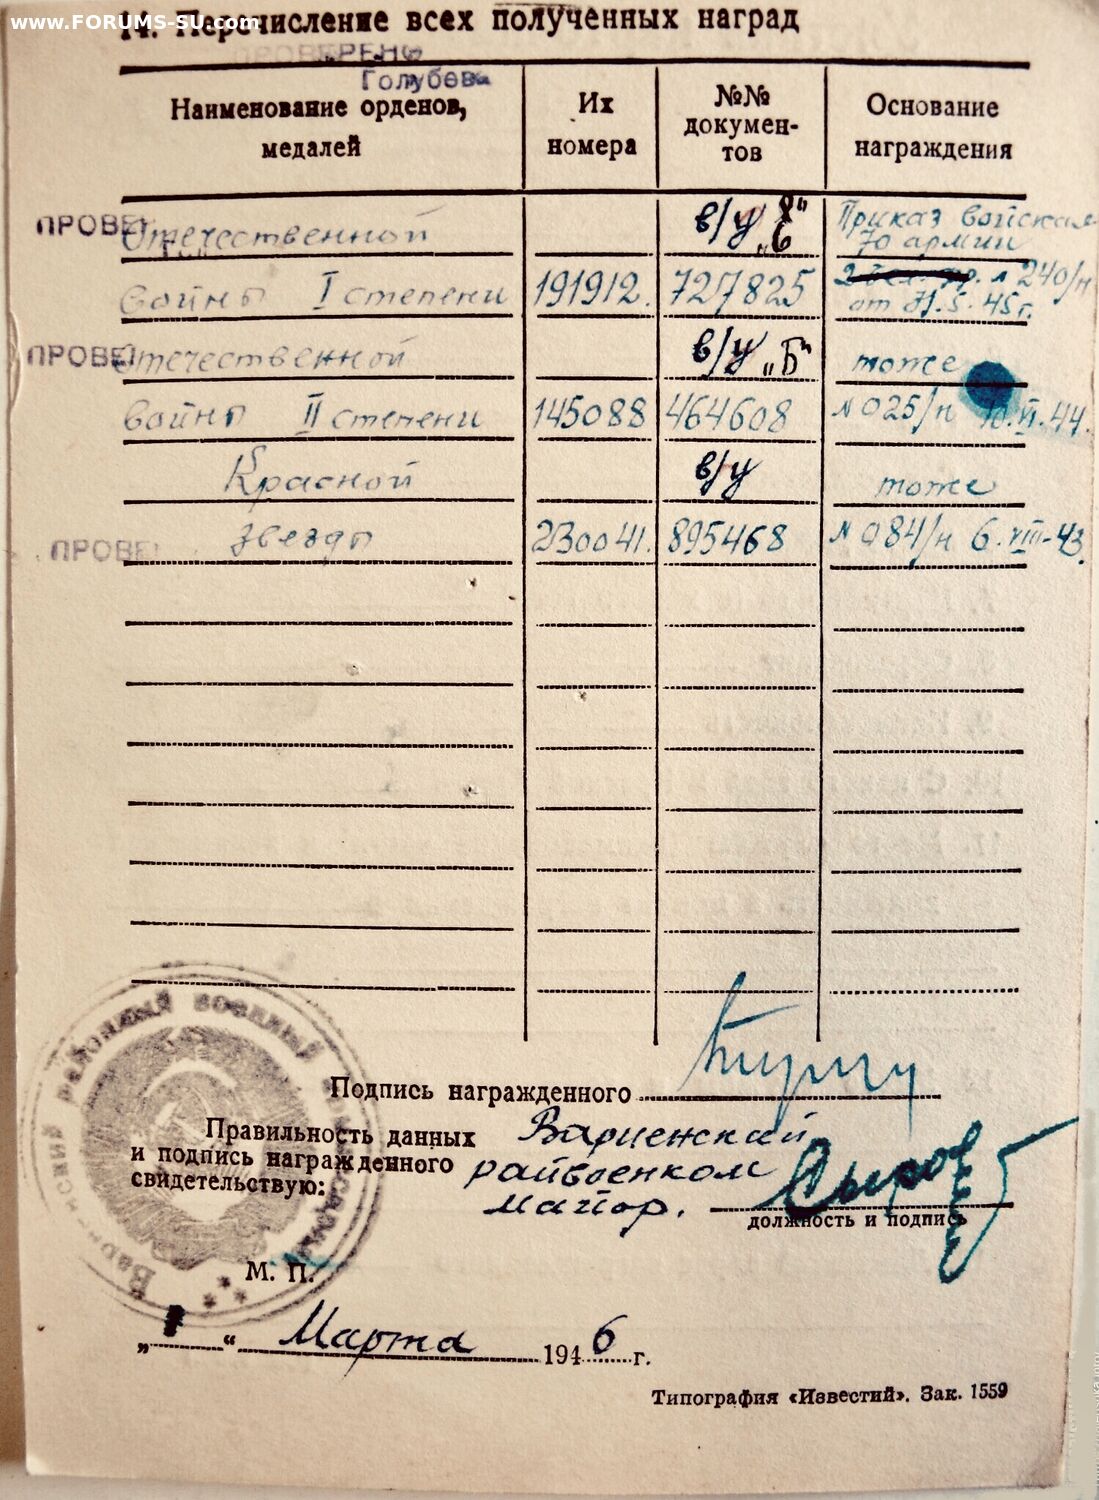 www.FORUMS-SU.com
14. Перечисление всех полученных наград
ПРОВЕРЕНО
Голубева
Наименование орденов, медалей
Их номера
№№ документов
Основание награждения
ПРОВЕ
Отечественной
в/у „Б“
Приказ войскам
70 армии
войны I степени
191912.
727825
240/н
от 31.5.45 г.
ПРОВЕ
Отечественной
в/у „Б“
тоже
войны II степени
145088
464608
№ 025/н 10.VI.44.
Красной
в/у
тоже
ПРОВЕ
звезды
230041.
895468
№ 084/н 6.VIII-43.
Подпись награжденного
Правильность данных
и подпись награжденного
свидетельствую:
Варненский
райвоенком
майор.
должность и подпись
районный военный
М. П.
„ “ Марта 1946 г.
Типография «Известий». Зак. 1559